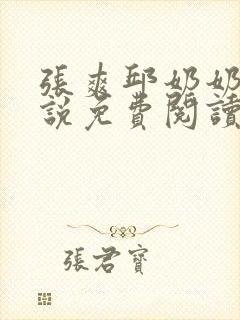 張爽邱奶奶
說免費閱讀
張君寶